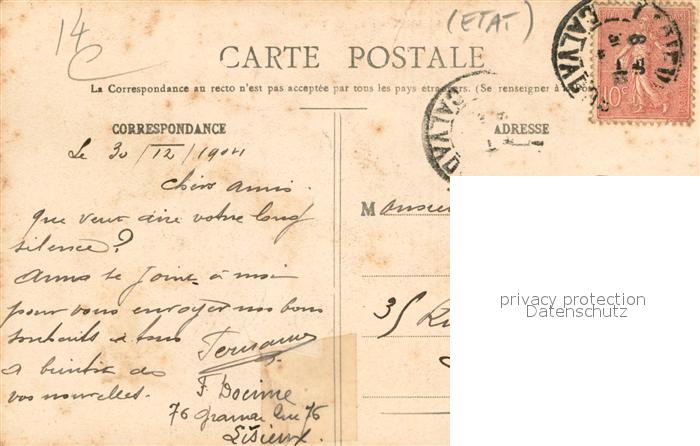 14
C
(ETAT)
CARTE POSTALE
La Correspondance au recto n'est pas acceptée par tous les pays étrangers. (Se renseigner à
CORRESPONDANCE
ADRESSE
Le 30/12/1904
Chers amis.
que veut dire votre long
silence?
se joint à moi
pour vous envoyer nos bons
souhaits à tous
A bientôt de
vos nouvelles.
F.
76 grande rue 76
Lisieux.
Monsieur
35 Ru
CALVADOS
CALVADOS
10c
privacy protection
Datenschutz